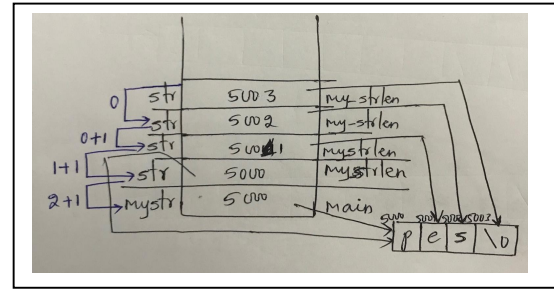 0 str 5003 my strlen
0+1 str 5002 my-strlen
1+1 str 5001 mystrlen
2+1 str 5000 mystrlen
mystr 5000 main
5000 5001 5002 5003
p e s \0